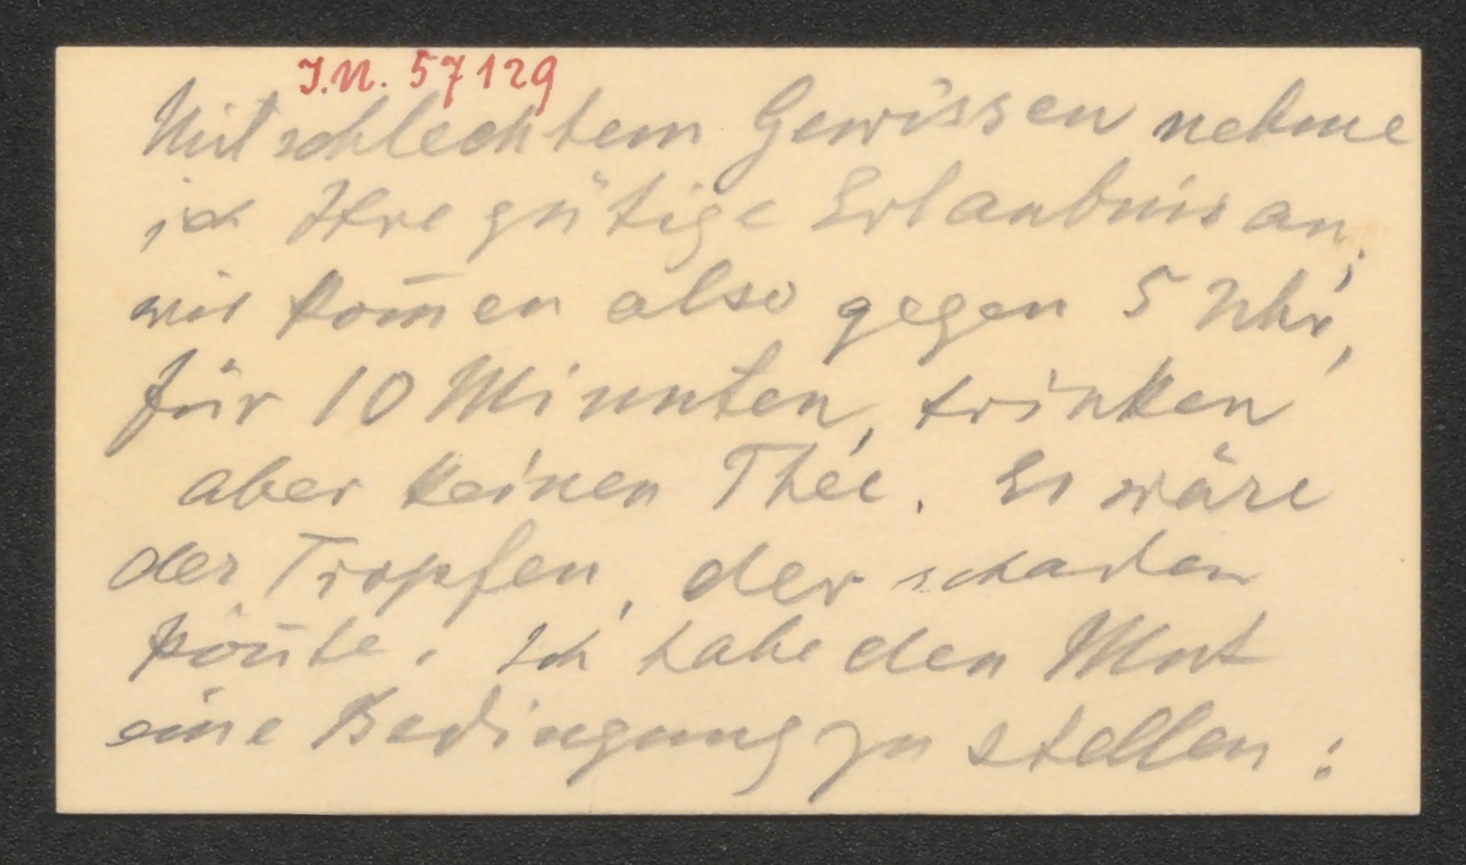 I.N. 57129
Mit schlechtem Gewissen nehme
ich Ihre gütige Erlaubnis an;
wir kom̄en also gegen 5 Uhr,
für 10 Minuten, trinken
aber keinen Thee. Es wäre
der Tropfen, der schaden
kön̄te. Ich habe den Mut
eine Bedingung zu stellen: